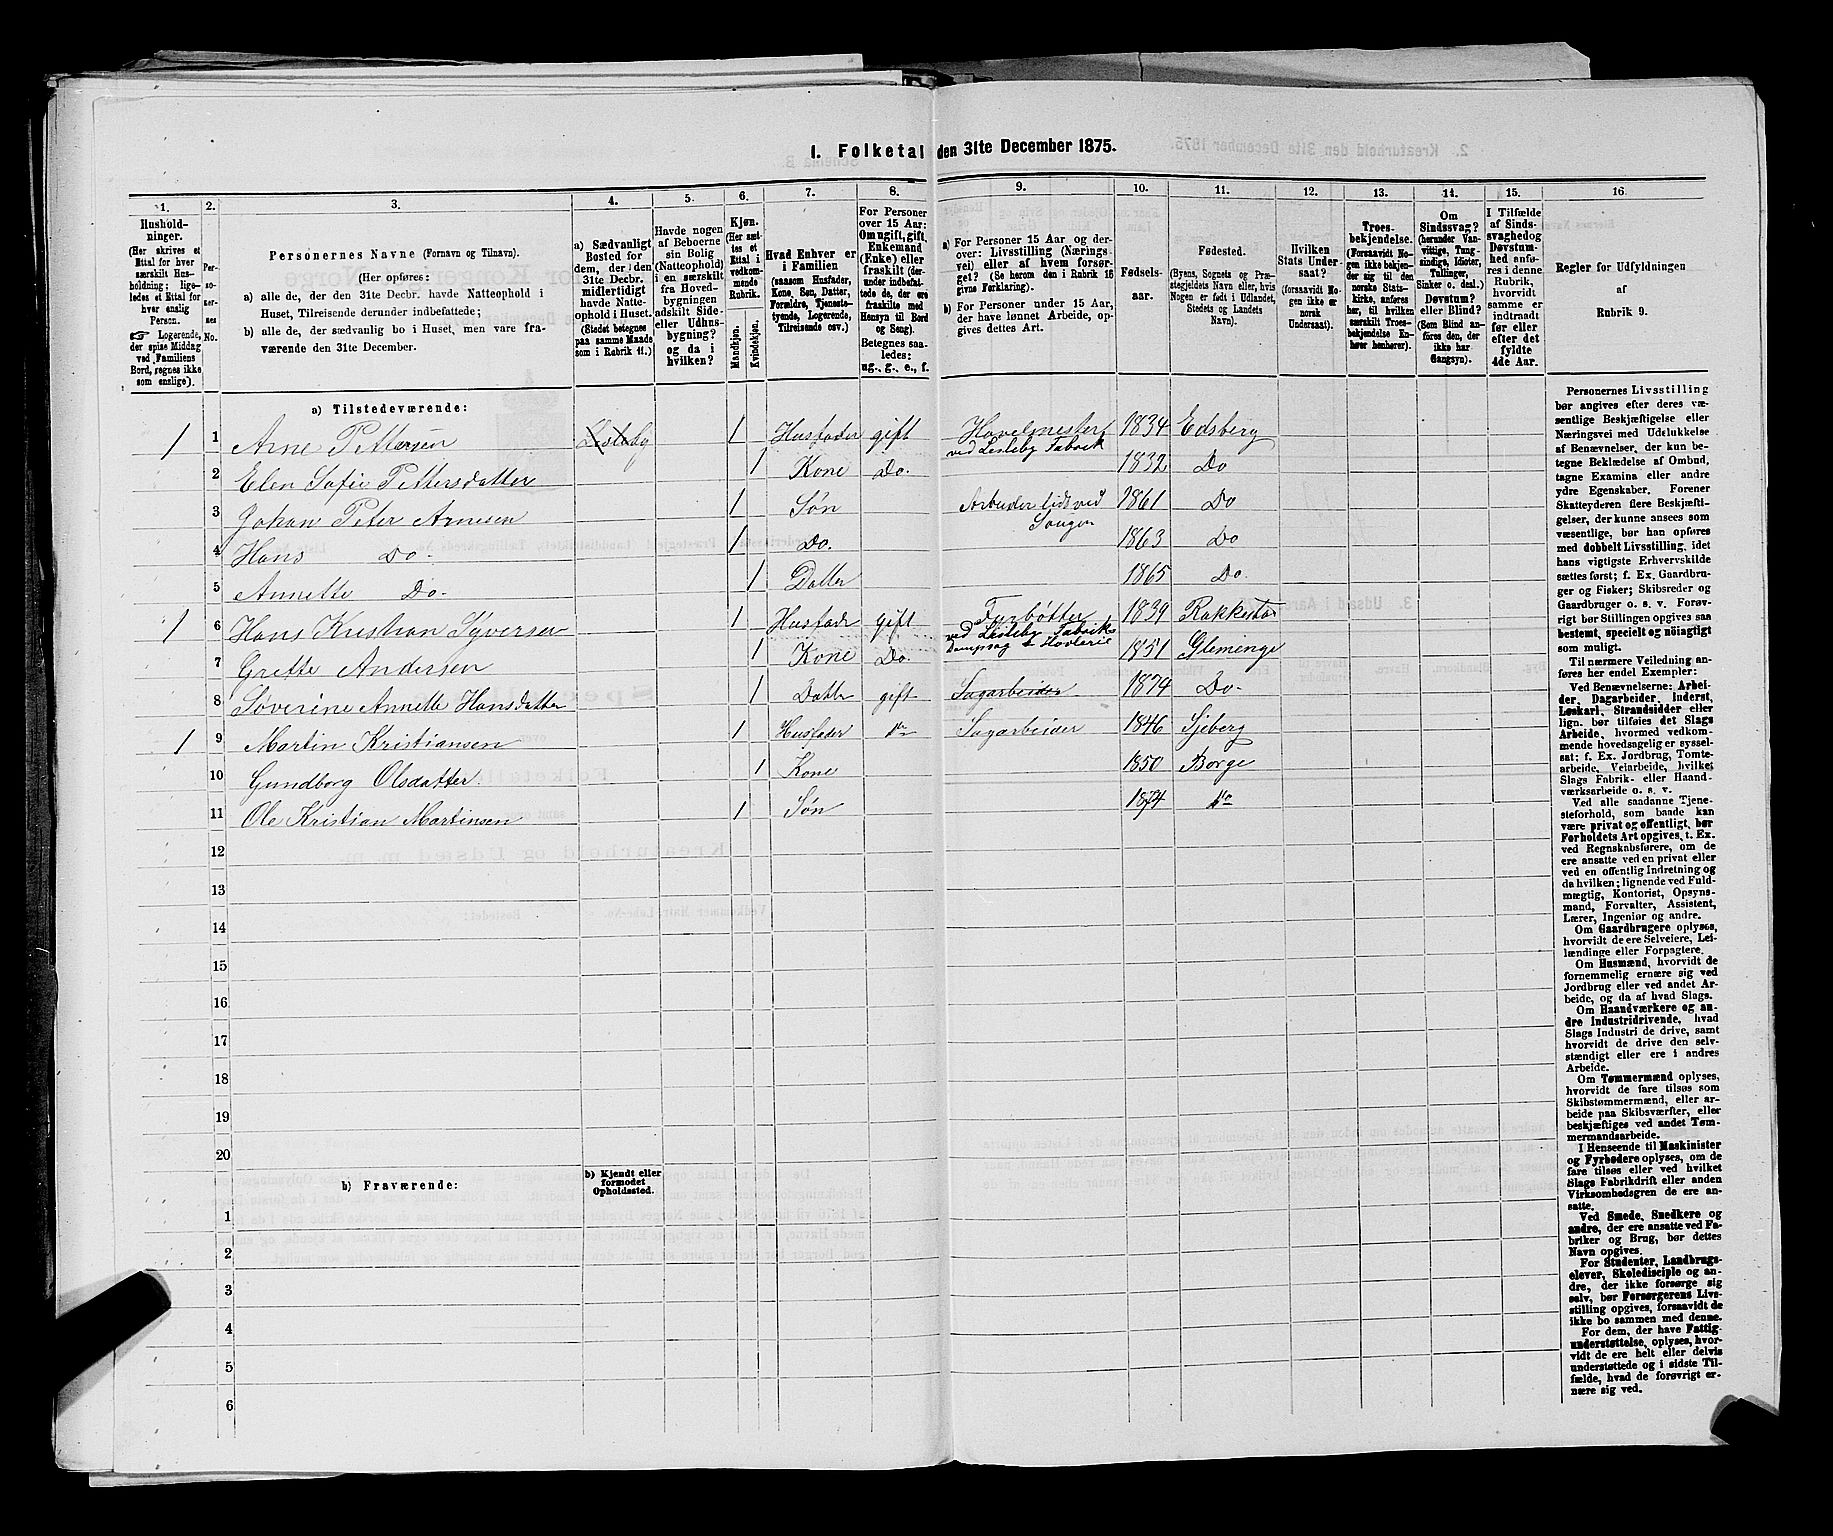 1. Folketal den 31te December 1875.
1. 2. 3. 4. 5. 6. 7. 8. 9. 10. 11. 12. 13. 14. 15. 16.
Hushold-
ninger.
(Her skrives et
Ettal for hver
særskilt Hus-
holdning; lige-
ledes et Ettal for
hver enslig
Person.
☞ Logerende,
der spise Middag
ved Familiens
Bord, regnes ikke
som enslige).
Per-
so-
ner-
nes
No.
Personernes Navne (Fornavn og Tilnavn).
(Her opføres:
a) alle de, der den 31te Decbr. havde Natteophold i
Huset, Tilreisende derunder indbefattede;
b) alle de, der sædvanlig bo i Huset, men vare fra-
værende den 31te December.
a) Sædvanligt
Bosted for
dem, der i den
31te Decbr.
midlertidigt
havde Natte-
ophold i Huset.
(Stedet betegnes
paa samme Maade
som i Rubrik 11.)
Havde nogen
af Beboerne
sin Bolig
(Natteophold)
i en særskilt
fra Hoved-
bygningen
adskilt Side-
eller Udhus-
bygning?
og da i
hvilken?
Kjøn.
(Her sæt-
tes et
Ettal i
vedkom-
mende
Rubrik.
Mandkjøn.
Kvindekjøn.
Hvad Enhver er
i Familien
(saasom Husfader,
Kone, Søn, Datter,
Forældre, Tjeneste-
tyende, Logerende,
Tilreisende osv.)
For Personer
over 15 Aar:
Om ugift, gift,
Enkemand
(Enke) eller
fraskilt (der-
under indbefat-
tede de, der ere
fraskilte med
Hensyn til Bord
og Seng).
Betegnes saa-
ledes:
ug., g., e., f.
a) For Personer 15 Aar og der-
over: Livsstilling (Nærings-
vei) eller af hvem forsør-
get? (Se herom den i Rubrik 16
givne Forklaring).
b) For Personer under 15 Aar,
der have lønnet Arbeide, op-
gives dettes Art.
Fødsels-
aar.
Fødested.
(Byens, Sognets og Præ-
stegjeldets Navn eller, hvis
Nogen er født i Udlandet,
Stedets og Landets
Navn).
Hvilken
Stats Under-
saat?
(forsaavidt No-
gen ikke er
norsk
Undersaat).
Troes-
bekjendelse.
(Forsaavidt No-
gen ikke bekjen-
der sig til den
norske Stats-
kirke, anføres
her, til hvilken
særskilt Troes-
bekjendelse En-
hver henhører).
Om
Sindssvag?
(herunder Van-
vittige, Tung-
sindige, Idioter,
Tullinger,
Sinker o. desl.)
Døvstum?
eller Blind?
(Som Blind an-
føres den, der
ikke har
Gangsyn).
I Tilfælde
af Sinds-
svaghed og
Døvstum-
hed anfø-
res i denne
Rubrik,
hvorvidt
samme er
indtraadt
før eller
efter det
fyldte
4de Aar.
Regler for Udfyldningen
af
Rubrik 9.
a) Tilstedeværende:
1 1 Arne Pettersen Lisleby 1 Husfader gift Høvelmester ved Lisleby Fabrik 1834 Edsberg
2 Elen Sofie Pettersdatter 1 Kone Do. 1832 Do
3 Johan Peter Arnesen 1 Søn Arbeider tids ved Saugen 1861 Do
4 Hans Do. 1 Do. 1863 Do
5 Annette Do. 1 Datter 1865 Do.
1 6 Hans Kristian Syversen 1 Husfader gift Fyrbøtter ved Lisleby Fabriks Dampsag & Høvleri 1839 Rakkestad
7 Grette Andersen 1 Kone Do. 1851 Gleminge
8 Søverine Annette Hansdatter 1 Datter gift Sagarbeider 1874 Do.
1 9 Martin Kristiansen 1 Husfader Sagarbeider 1846 Sjeberg
10 Gundborg Olsdatter 1 Kone 1850 Borge
11 Ole Kristian Martinsen 1 Søn 1874
12
13
14
15
16
17
18
19
20
b) Fraværende:
b) Kjendt eller
formodet
Opholdssted.
1
2
3
4
5
6
Personernes Livsstilling
bør angives efter deres væ-
sentlige Beskjæftigelse eller
Næringsvei med Udelukkelse
af Benævnelser, der kun be-
tegne Beklædelse af Ombud,
tagne Examina eller andre
ydre Egenskaber. Forener
Skatteyderen flere Beskjæfti-
gelser, der kunne ansees som
væsentlige, bør han opføres
med dobbelt Livsstilling, idet
hans vigtigste Erhvervskilde
sættes først; f. Ex. Gaardbru-
ger og Fisker; Skibsreder og
Gaardbruger o. s. v. Forøv-
rigt bør Stillingen opgives saa
bestemt, specielt og nøiagtigt
som muligt.
Til nærmere Veiledning an-
føres her endel Exempler:
Ved Benævnelserne: Arbei-
der, Dagarbeider, Inderst,
Løskarl, Strandsidder eller
lign. bør tilføies det Slags
Arbeide, hvormed vedkom-
mende hovedsagelig er syssel-
sat; f. Ex. Jordbrug, Tomte-
arbeide, Veiarbeide, hvilket
Slags Fabrik- eller Haand-
værksarbeide o. s. v.
Ved alle saadanne Tjene-
steforhold, som baade kan
være privat og offentligt, bør
Forholdets Art opgives, t. Ex.
ved Regnskabsførere, om de
ere ansatte ved en privat eller
ved en offentlig Indretning og
da hvilken; lignende ved Fuld-
mægtig, Kontorist, Opsyns-
mand, Forvalter, Assistent,
Lærer, Ingeniør og andre.
Om Gaardbrugere oplyses,
hvorvidt de ere Selveiere, Lei-
lændinge eller Forpagtere.
Om Husmænd, hvorvidt de
fornemmelig ernære sig ved
Jordbrug eller ved andet Ar-
beide, og da af hvad Slags.
Om Haandværkere og an-
dre Industridrivende, hvad
Slags Industri de drive, samt
hvorvidt de drive den selv-
stændigt eller ere i andres
Arbeide.
Om Tømmermænd oplyses,
hvorvidt de fare tilsøs som
Skibstømmermænd, eller ar-
beide paa Skibsværfter, eller
beskjæftiges ved andet Tøm-
mermandsarbeide.
I Henseende til Maskinister
og Fyrbødere oplyses, om de
fare tilsøs eller ved hvilket
Slags Fabrikdrift eller anden
Virksomhedsgren de ere an-
satte.
Ved Smede, Snedkere og
andre, der ere ansatte ved Fa-
briker og Brug, bør dettes
Navn opgives.
For Studenter, Landbrugs-
elever, Skoledisciple og an-
dre, der ikke forsørge sig
selv, bør Forsørgerens Livs-
stilling opgives, forsaavidt de
ikke bo sammen med denne.
For dem, der have Fattig-
understøttelse, oplyses, hvor-
vidt de ere helt eller delvis
understøttede og i sidste Til-
fælde, hvad de forøvrigt er-
nære sig ved.